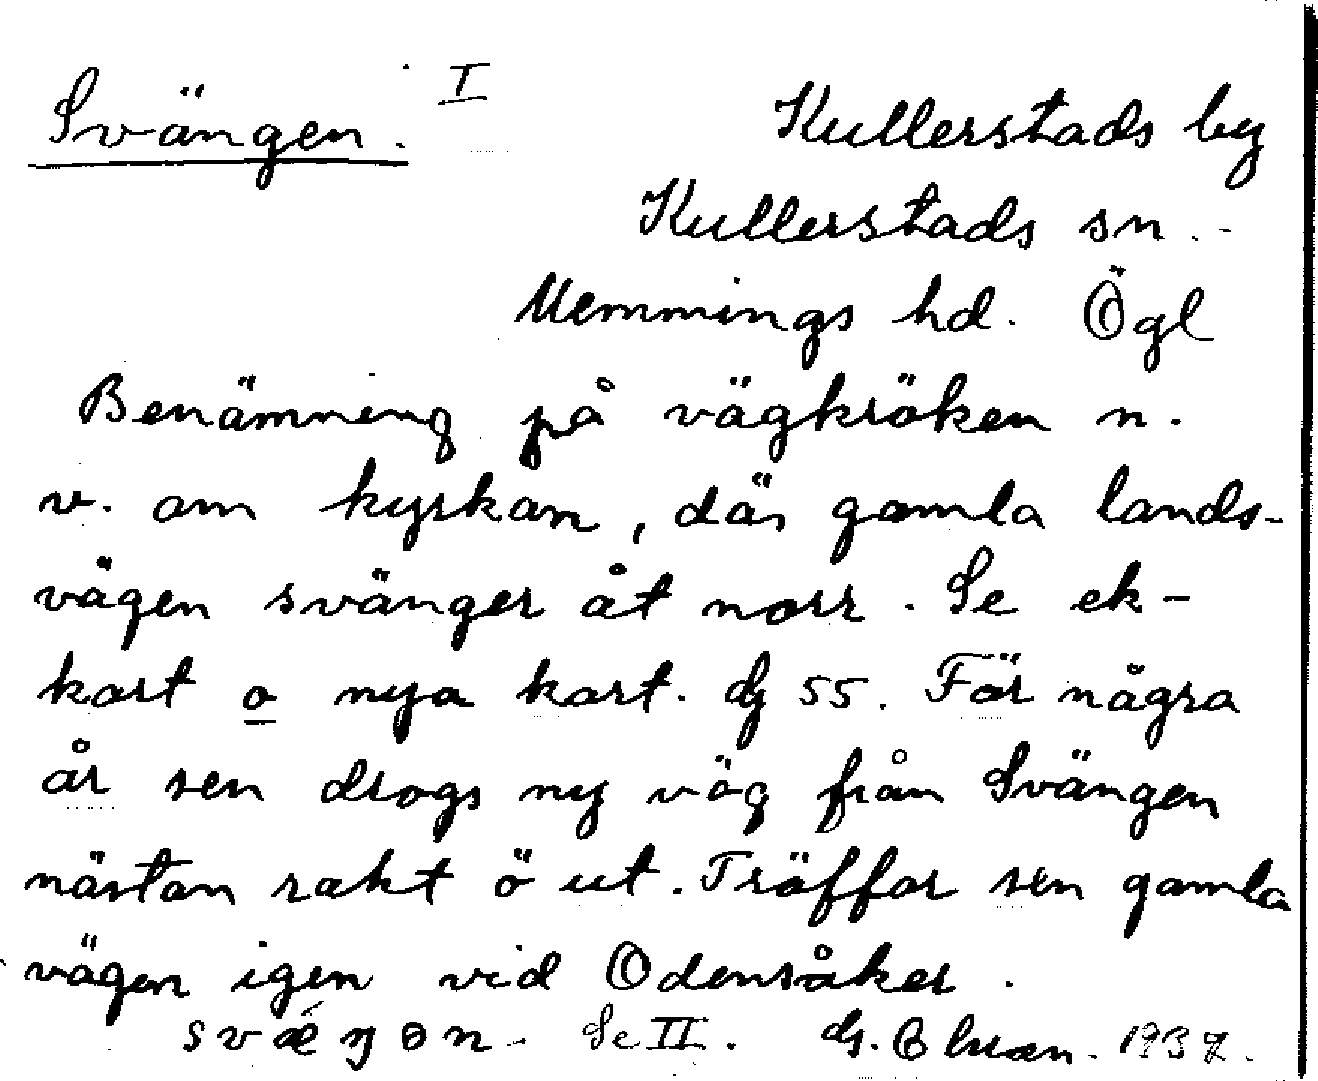 Svängen. I
Kullerstads by
Kullerstads sn.
Memmings hd. Ögl
Benämning på vägkröken n.
v. om kyrkan, där gamla lands-
vägen svänger åt norr. Se ek-
kart o nya kart. 55. För några
år sen drogs ny väg från Svängen
nästan rakt ö ut. Träffar sen gamla
vägen igen vid Odensåker.
Se II. G. 1937.